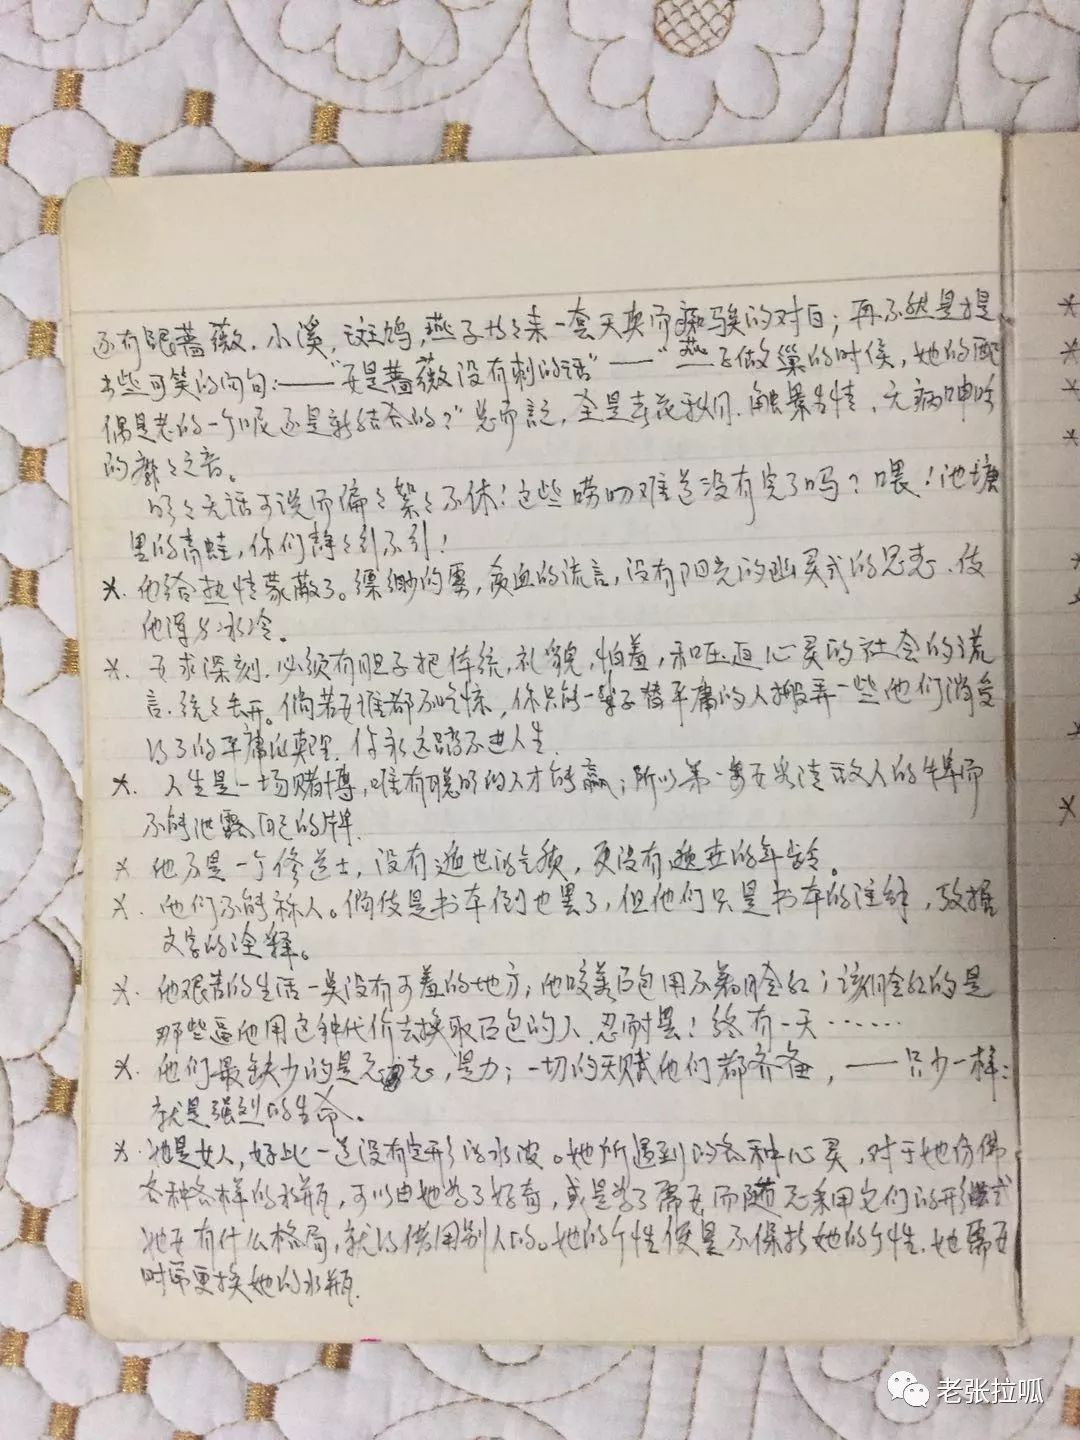 还有跟蔷薇、小溪，斑鸠，燕子扮々来一套天真而痴騃的对白；再不然是提
出些可笑的问句：——“要是蔷薇没有刺的话”——“燕子做巢的时候，她的配
偶是老的一个呢还是新结合的？”总而言之，全是春花秋月、触景生情、无病呻吟
的靡々之音。
明々无话可说而偏々絮々不休！这些唠叨难道没有完了吗？喂！池塘
里的青蛙，你们静々则不则！
*. 他给热情蒙蔽了。缥缈的雾，贫血的谎言，没有阳光的幽灵式的思想、使
他浑身冰冷。
*. 要求深刻、必须有胆子把体统，礼貌，怕羞，和压迫心灵的社会的谎
言、统々丢开。倘若要谁都不吃惊，你只能一辈子替平庸的人搬弄一些他们消受
得了的平庸的真理，你永远踏不进人生。
*. 人生是一场赌博，唯有聪明的人才能赢；所以第一要看清敌人的牌而
不能泄露自己的牌。
* 他不是一个修道士，没有遁世的气质，更没有遁世的年龄。
*. 他们不能称人。倘使是书本倒也罢了，但他们只是书本的注解，
文字的诠释。
*. 他艰苦的生活一点没有可羞的地方；他咬着面包用不着脸红；该脸红的是
那些逼他用这种代价去换取面包的人、忍耐罢！终有一天……
*. 他们最缺少的是意志，是力；一切的天赋他们都齐备，——只少一样：
就是强烈的生命。
*. 她是女人，好比一道没有定形的水波。她所遇到的各种心灵，对于她仿佛
各种各样的水瓶，可以由她为了好奇，或是为了需要而随意采用它们的形式
她要有什么格局，就得借用别人的。她的个性便是不保持她的个性、她需要
时常更换她的水瓶。
老张拉呱